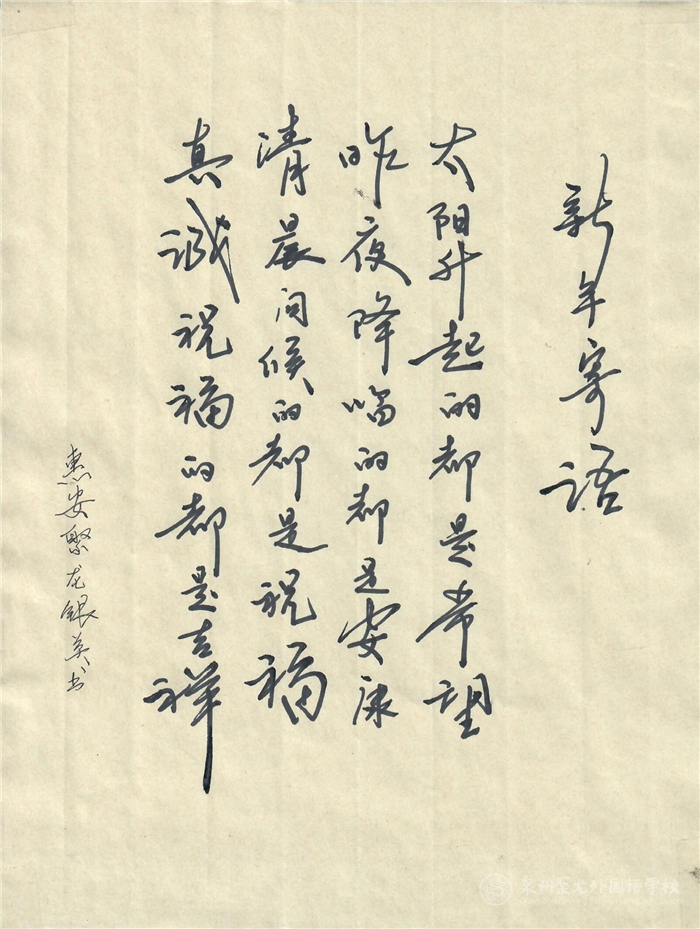 新年寄语
太阳升起的都是希望
昨夜降临的都是安康
清晨问候的都是祝福
真诚祝福的都是吉祥
惠安聚龙银英书
泉州聚龙外国语学校